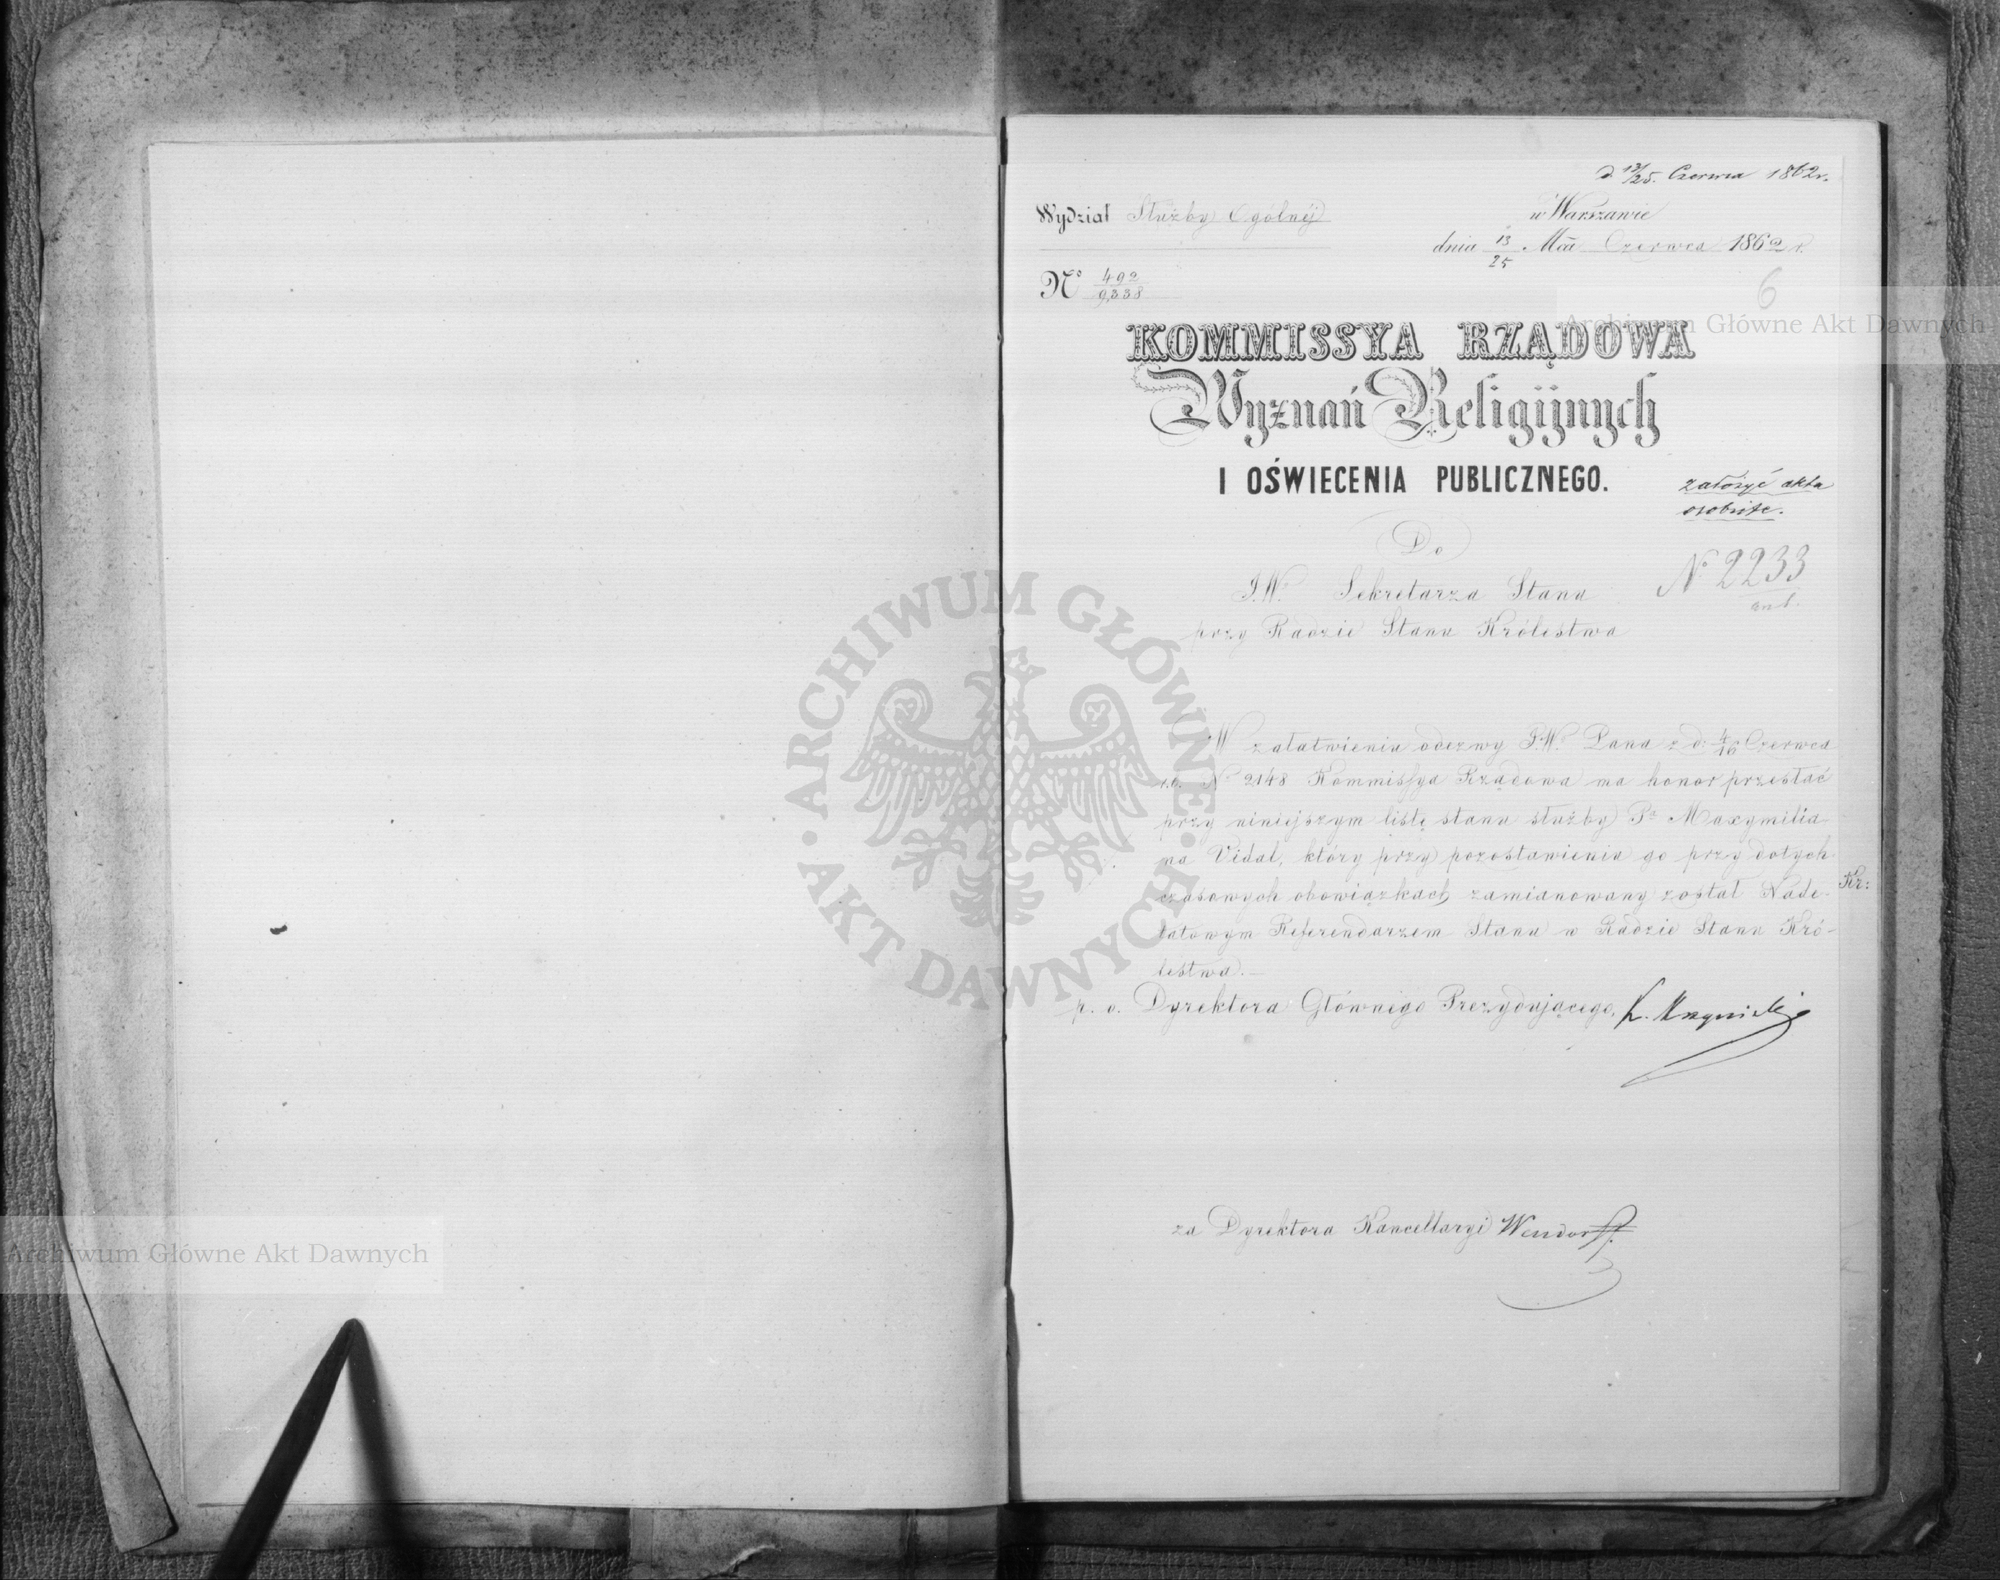 d. 13/25. Czerwca 1862 r.
Wydział Służby Ogólnéj
w Warszawie
dnia 13/25 Mca Czerwca 1862 r.
No 492/9,338
6
KOMMISSYA RZĄDOWA
Wyznań Religijnych
I OŚWIECENIA PUBLICZNEGO.
założyć akta
osobiste.
Do
J.W. Sekretarza Stanu
przy Radzie Stanu Królestwa
No 2233
W załatwieniu odezwy J.W. Pana z d: 4/16 Czerwca
r.b. No 2148 Kommissya Rządowa ma honor przesłać
przy niniejszym listę stanu służby Pa Maxymilia-
na Vidal, który przy pozostawieniu go przy dotych-
czasowych obowiązkach zamianowany został Nade-
Kr:
tatowym Referendarzem Stanu w Radzie Stanu Kró-
lestwa.—
p. o. Dyrektora Głównego Prezydującego, K. Krzywicki
za Dyrektora Kancellaryi Wendorff.
Archiwum Główne Akt Dawnych
Archiwum Główne Akt Dawnych
ARCHIWUM GŁÓWNE · AKT DAWNYCH ·